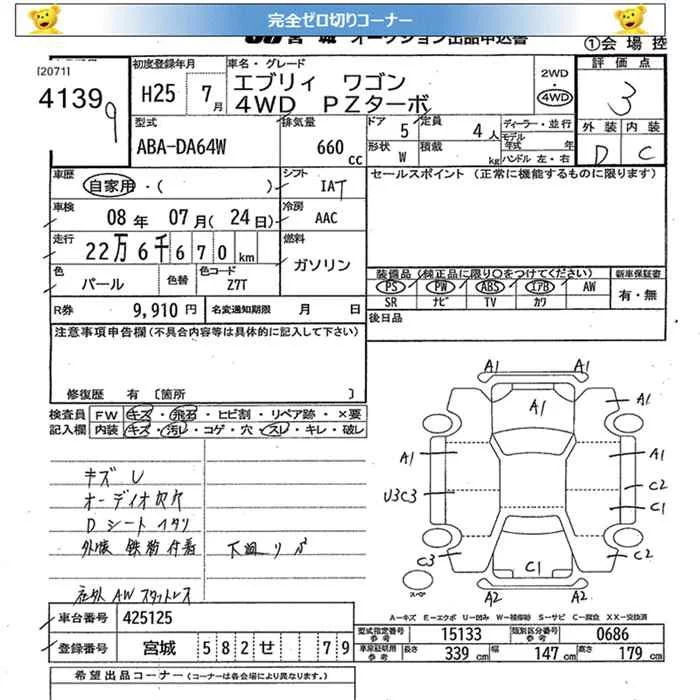 完全ゼロ切りコーナー
宮城 オークション出品申込書
①会場控
[2071]
41399
初度登録年月
H25 7月
車名・グレード
エブリィ ワゴン
4WD PZターボ
2WD
・
4WD
評価点
3
外装 内装
D C
型式
ABA-DA64W
排気量
660 cc
ドア 5
定員 4人
形状 W
積載 kg
ディーラー・並行
モデル年式 年
ハンドル 左・右
車歴
自家用・( )
シフト
IAT
セールスポイント (正常に機能するものに限ります)
車検
08年 07月(24日)
冷房
AAC
走行
22万6千670km
燃料
ガソリン
色
パール
色替
色コード
Z7T
装備品(純正品に限り〇をつけてください)
新車保証書
PS PW ABS エアB AW
SR ナビ TV カワ
有・無
R券 9,910円
名変通知期限 月 日
後日品
注意事項申告欄(不具合内容等は具体的に記入して下さい)
修復歴 有 〔箇所 〕
検査員記入欄
FW キズ・飛石・ヒビ割・リペア跡・×要
内装 キズ・汚レ・コゲ・穴・スレ・キレ・破レ
キズ U
オーディオ欠穴
Dシート
外装 鉄粉付着
下廻り
社外AWスタットレス
A1 A1
A1 A1
A1 A1
U3C3 C2
C1
C3 C1 C2
A2 A2
スペア
A-キズ E-エクボ U-凹み W-補修跡 S-サビ C-腐食 XX-交換済
車台番号 425125
登録番号 宮城 582 せ 79
型式指定番号参考 15133
類別区分番号参考 0686
車庫証明用参考 長さ 339cm 幅 147cm 高さ 179cm
希望出品コーナー (コーナーは各会場により異なります。)